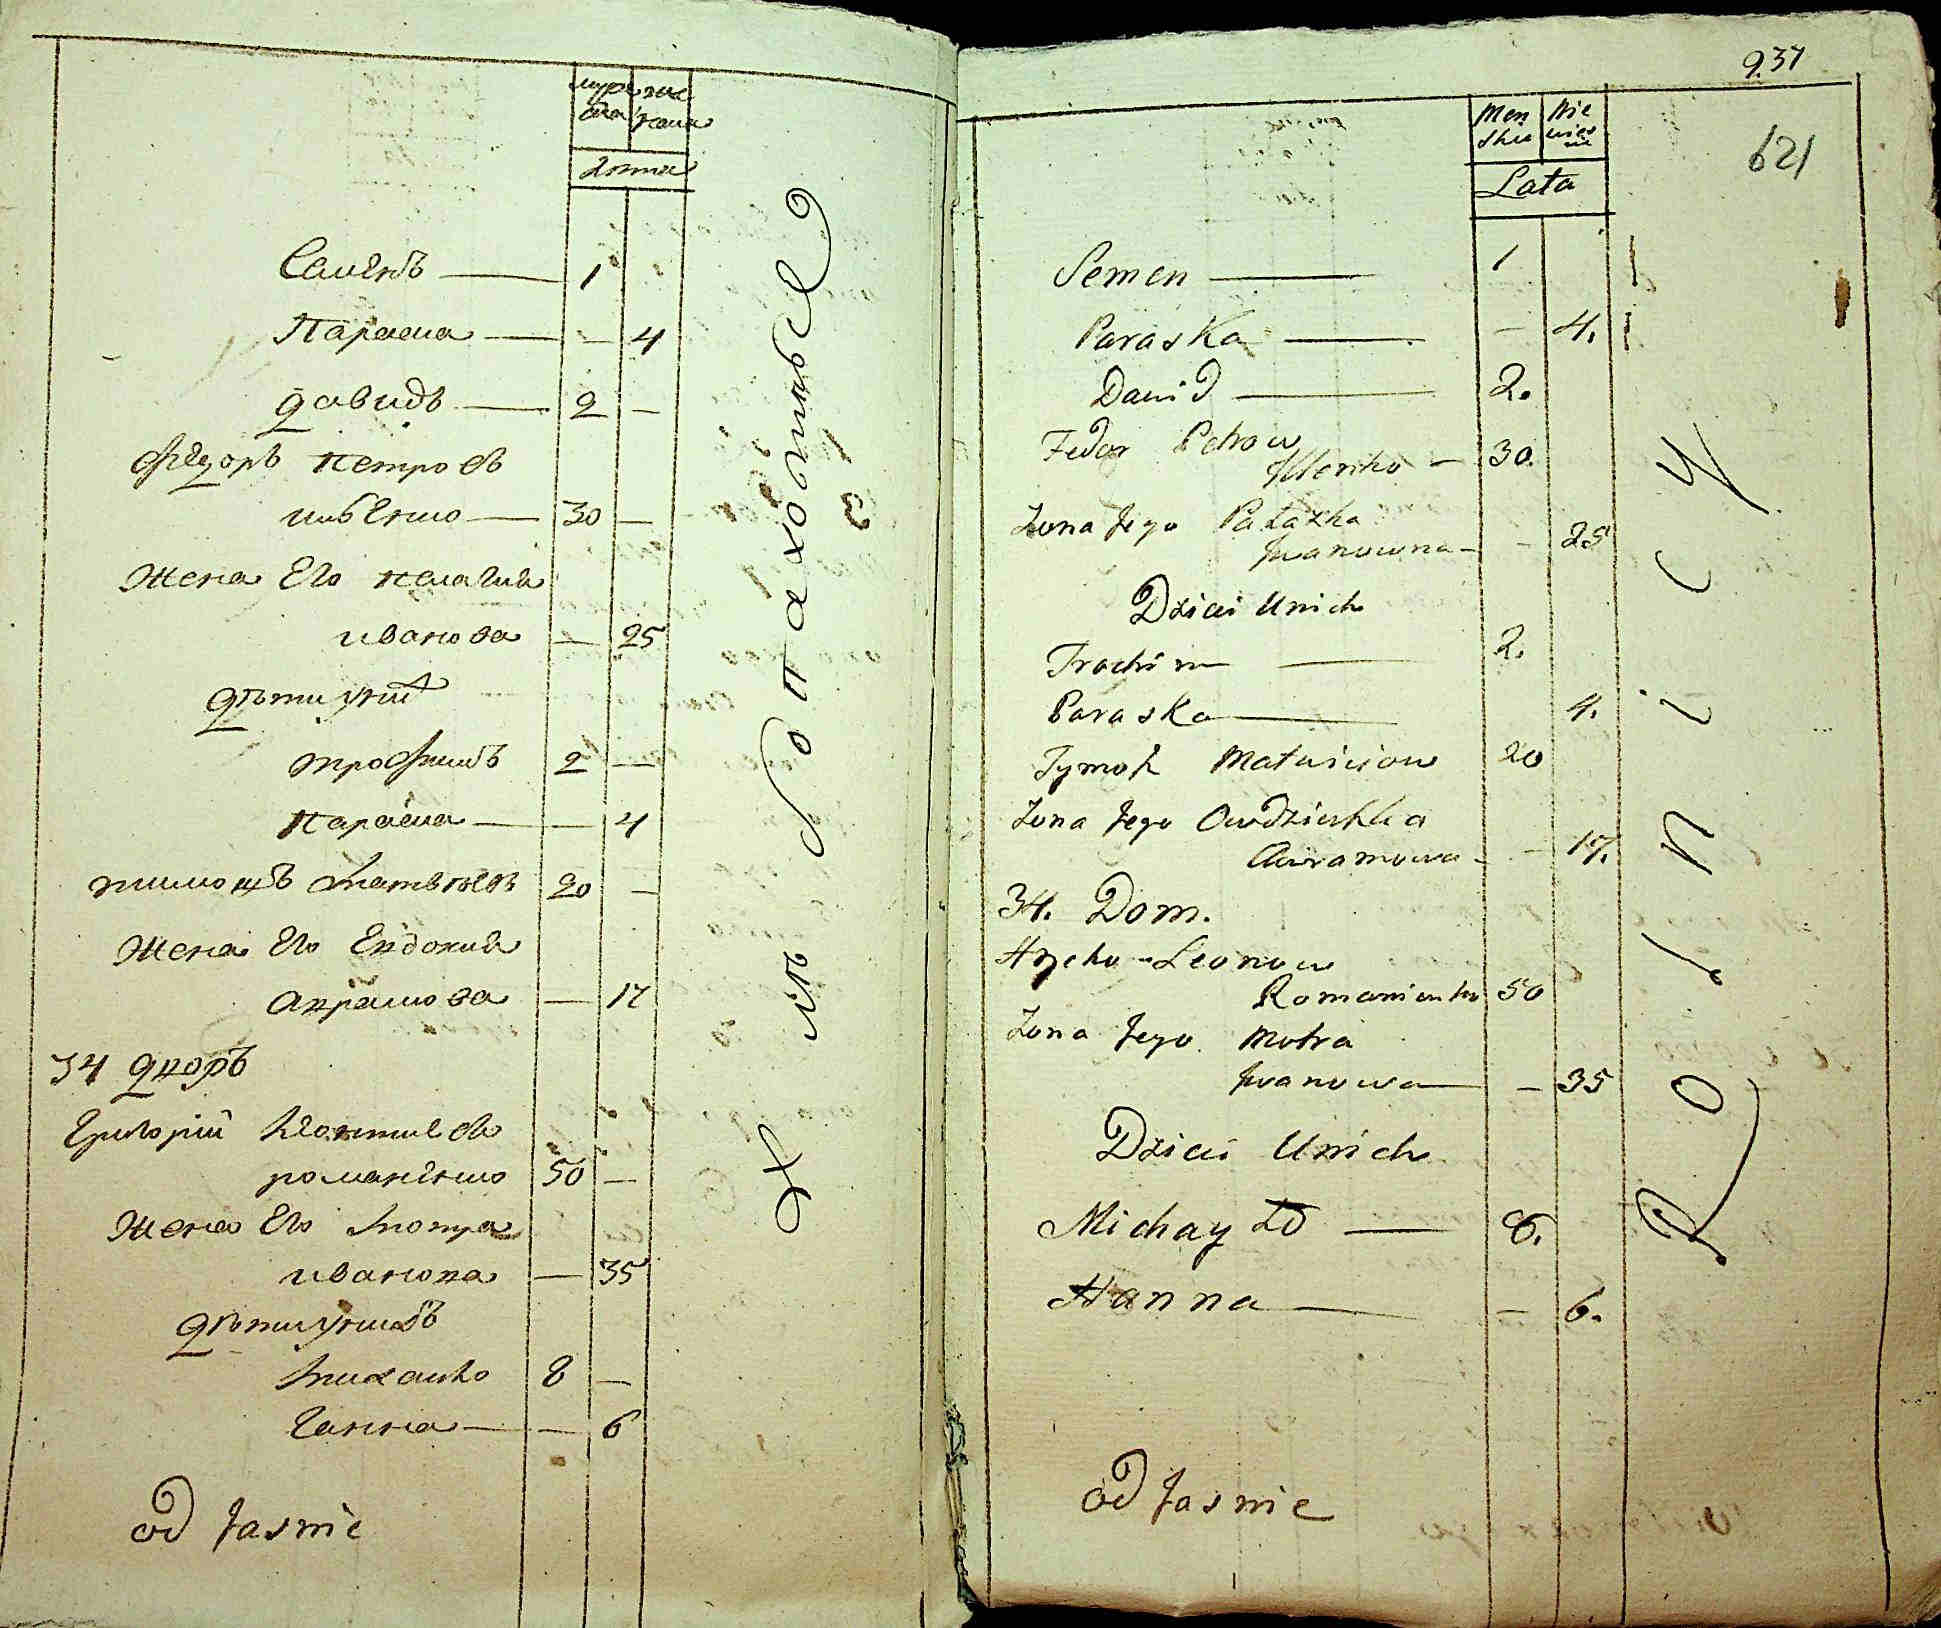 муже
ска
жен
ска
лета
Семенъ — 1
Параска — — 4
Давидъ — 2 —
Федоръ Петровъ
30 —
Жена Его Пелагия
Иванова — 25
Дѣти у них
Трофимъ 2 —
Параска — — 4
Тимофей Матвѣевъ 20 —
Жена Его Евдокия
Аврамова — 17
34 Дворъ
Григорий
Романенко 50 —
Жена Его Мотра
Иванова — 35
Дѣти у нихъ
Михайло 8 —
Ганна — — 6
od Jasnie
Хлѣбопахотныя
937
621
Męz
skie
Nie
wies
cie
Lata
Semen — 1
Paraska — — 4.
Dawid — 2.
Fedor Petrow
Ilienko — 30.
Zona Jego Pałazka
Iwanowna — — 25
Dzieci Unich
Trochim — 2.
Paraska — 4.
Tymoh Matwieiow 20
Zona Jego Owdziushka
Awramowa — — 17.
34. Dom.
Hryćko Leonow
Romanienko 50
Zona Jego Motra
Iwanowa — — 35
Dzieci Unich
Michayło — 8.
Hanna — — 6.
od Jasnie
Rolnicy